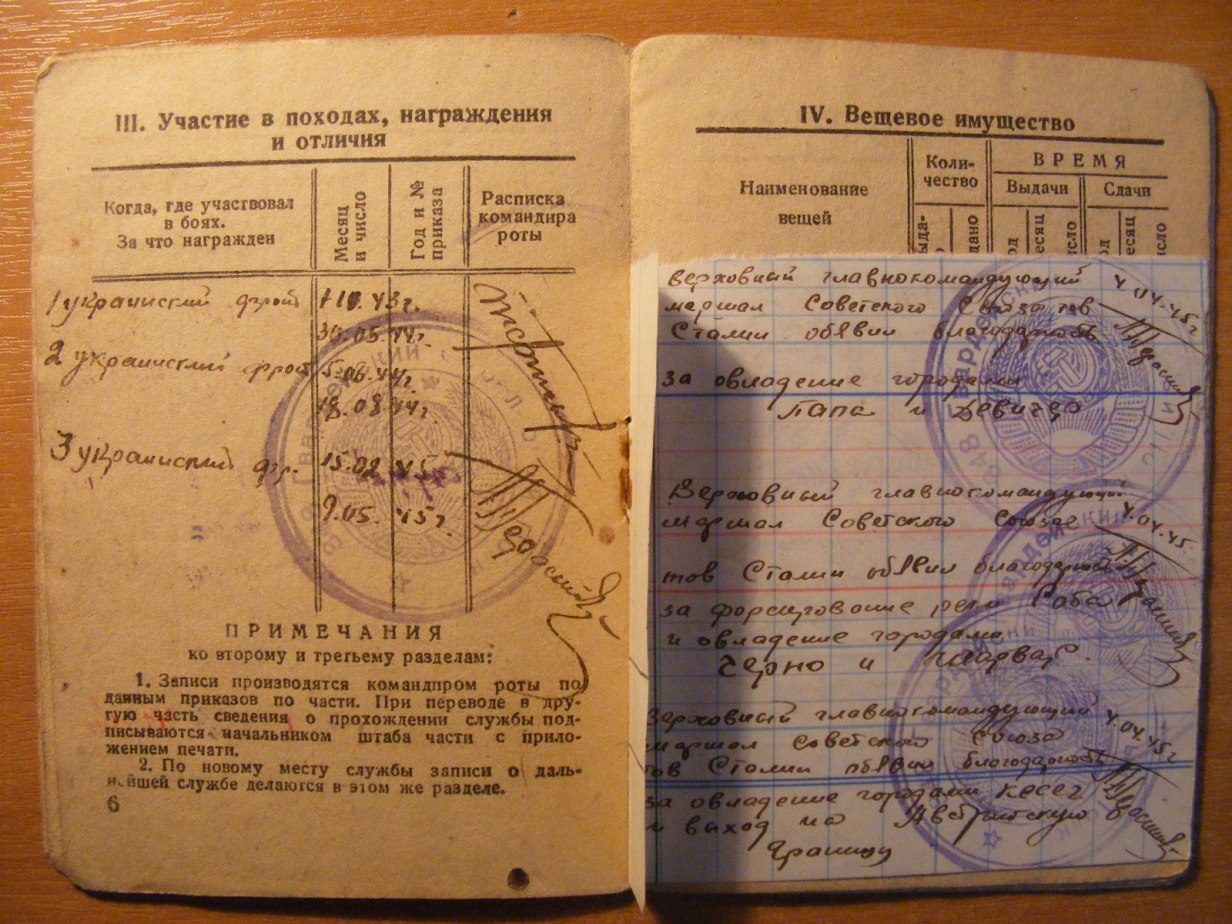 III. Участие в походах, награждения
и отличия
Когда, где участвовал
в боях.
За что награжден
Месяц
и число
Год и №
приказа
Расписка
командира
роты
1 украинский фронт
30.05.44г.
2 украинский фронт 5.06.44г.
18.08.44г
3 украинский фр. 15.02.45
9.05. 45г
ПРИМЕЧАНИЯ
ко второму и третьему разделам:
1. Записи производятся командпром роты по
данным приказов по части. При переводе в дру-
гую часть сведения о прохождении службы под-
писываются начальником штаба части с прило-
жением печати.
2. По новому месту службы записи о даль-
нейшей службе делаются в этом же разделе.
6
IV. Вещевое имущество
Наименование
вещей
Коли-
чество
ВРЕМЯ
Выдачи
Сдачи
верховный главнокомандующий
маршал Советского Союза тов
Сталин объявил благодарность
4.04.45г
за овладение городами
Папа и Девичер
Верховный главнокомандующий
маршал Советского Союза
4.04.45.
тов Сталин объявил благодарность
за форсирование реки Раба
и овладение городами
Черно и Шарвар.
Верховный главнокомандующий
маршал Советского Союза
4.04.45г
тов Сталин объявил благодарность
за овладение городами Кесег
и выход на Австрийскую
границу